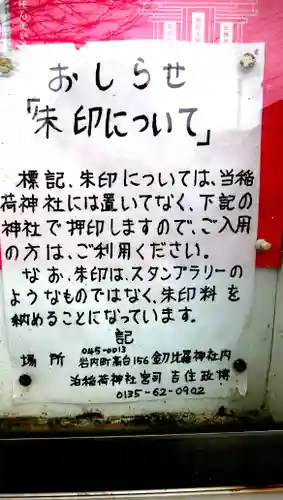 おしらせ
「朱印について」
標記、朱印については、当稲
荷神社には置いてなく、下記の
神社で押印しますので、ご入用
の方は、ご利用ください。
なお、朱印は、スタンプラリーの
ようなものではなく、朱印料を
納めることになっています。
記
045-0013
場所 岩内町高台156 金刀比羅神社内
治稲荷神社宮司 吉住政博
0135-62-0902